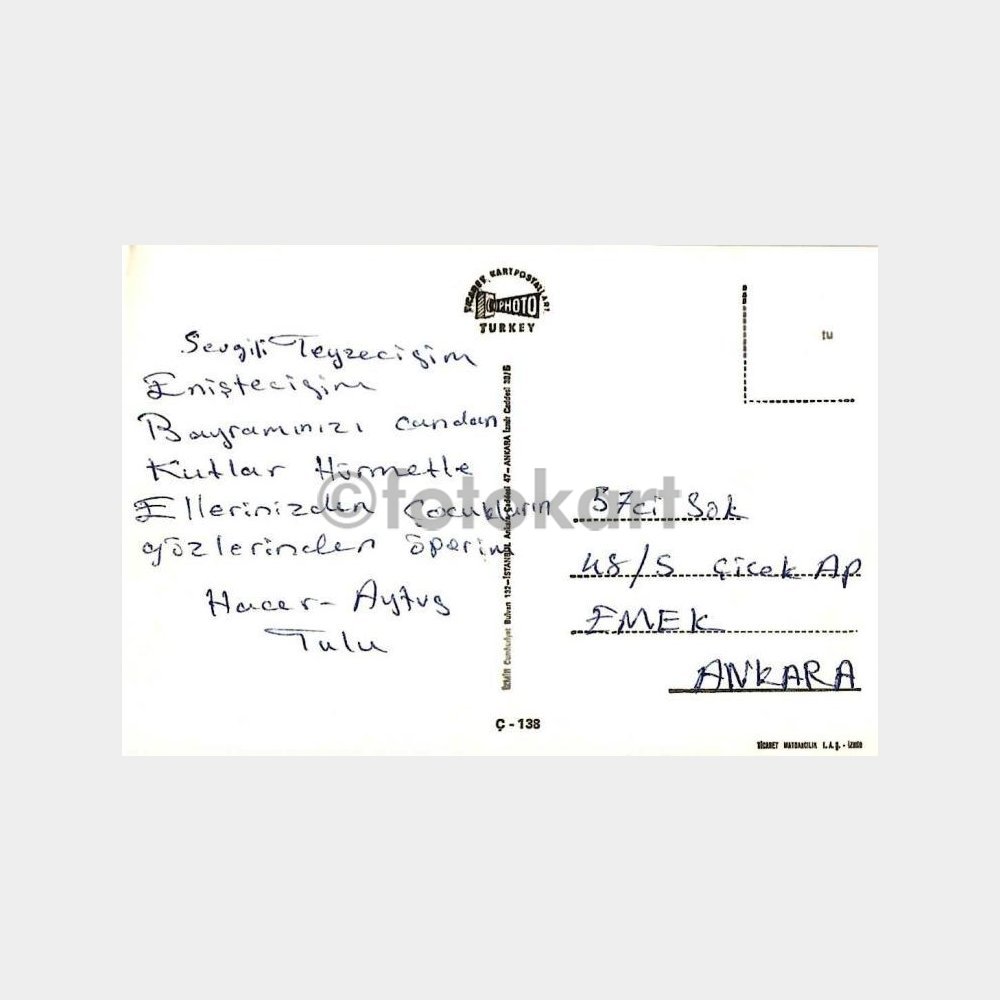 TİCARET KARTPOSTALLARI
PHOTO
TURKEY
tu
Sevgili Teyzeciğim
Enişteciğim
Bayramınızı candan
Kutlar Hürmetle
Ellerinizden Çocukların
gözlerinden öperim
Hacer - Aytuğ
Tulu
57ci Sok
48/5 Çiçek Ap
EMEK
ANKARA
İZMİR Cumhuriyet Bulvarı 132-İSTANBUL Ankara Caddesi 47-ANKARA İzmir Caddesi 33/B
Ç - 138
TİCARET MATBAACILIK T.A.Ş. - İZMİR
©fotokart